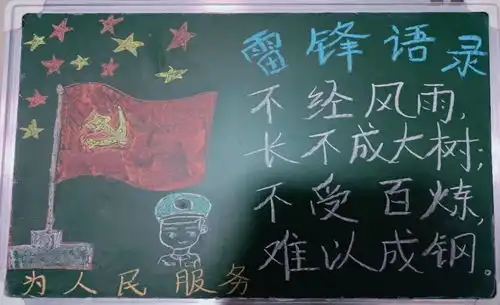 雷锋语录
不经风雨,
长不成大树;
不受百炼,
难以成钢。
为人民服务